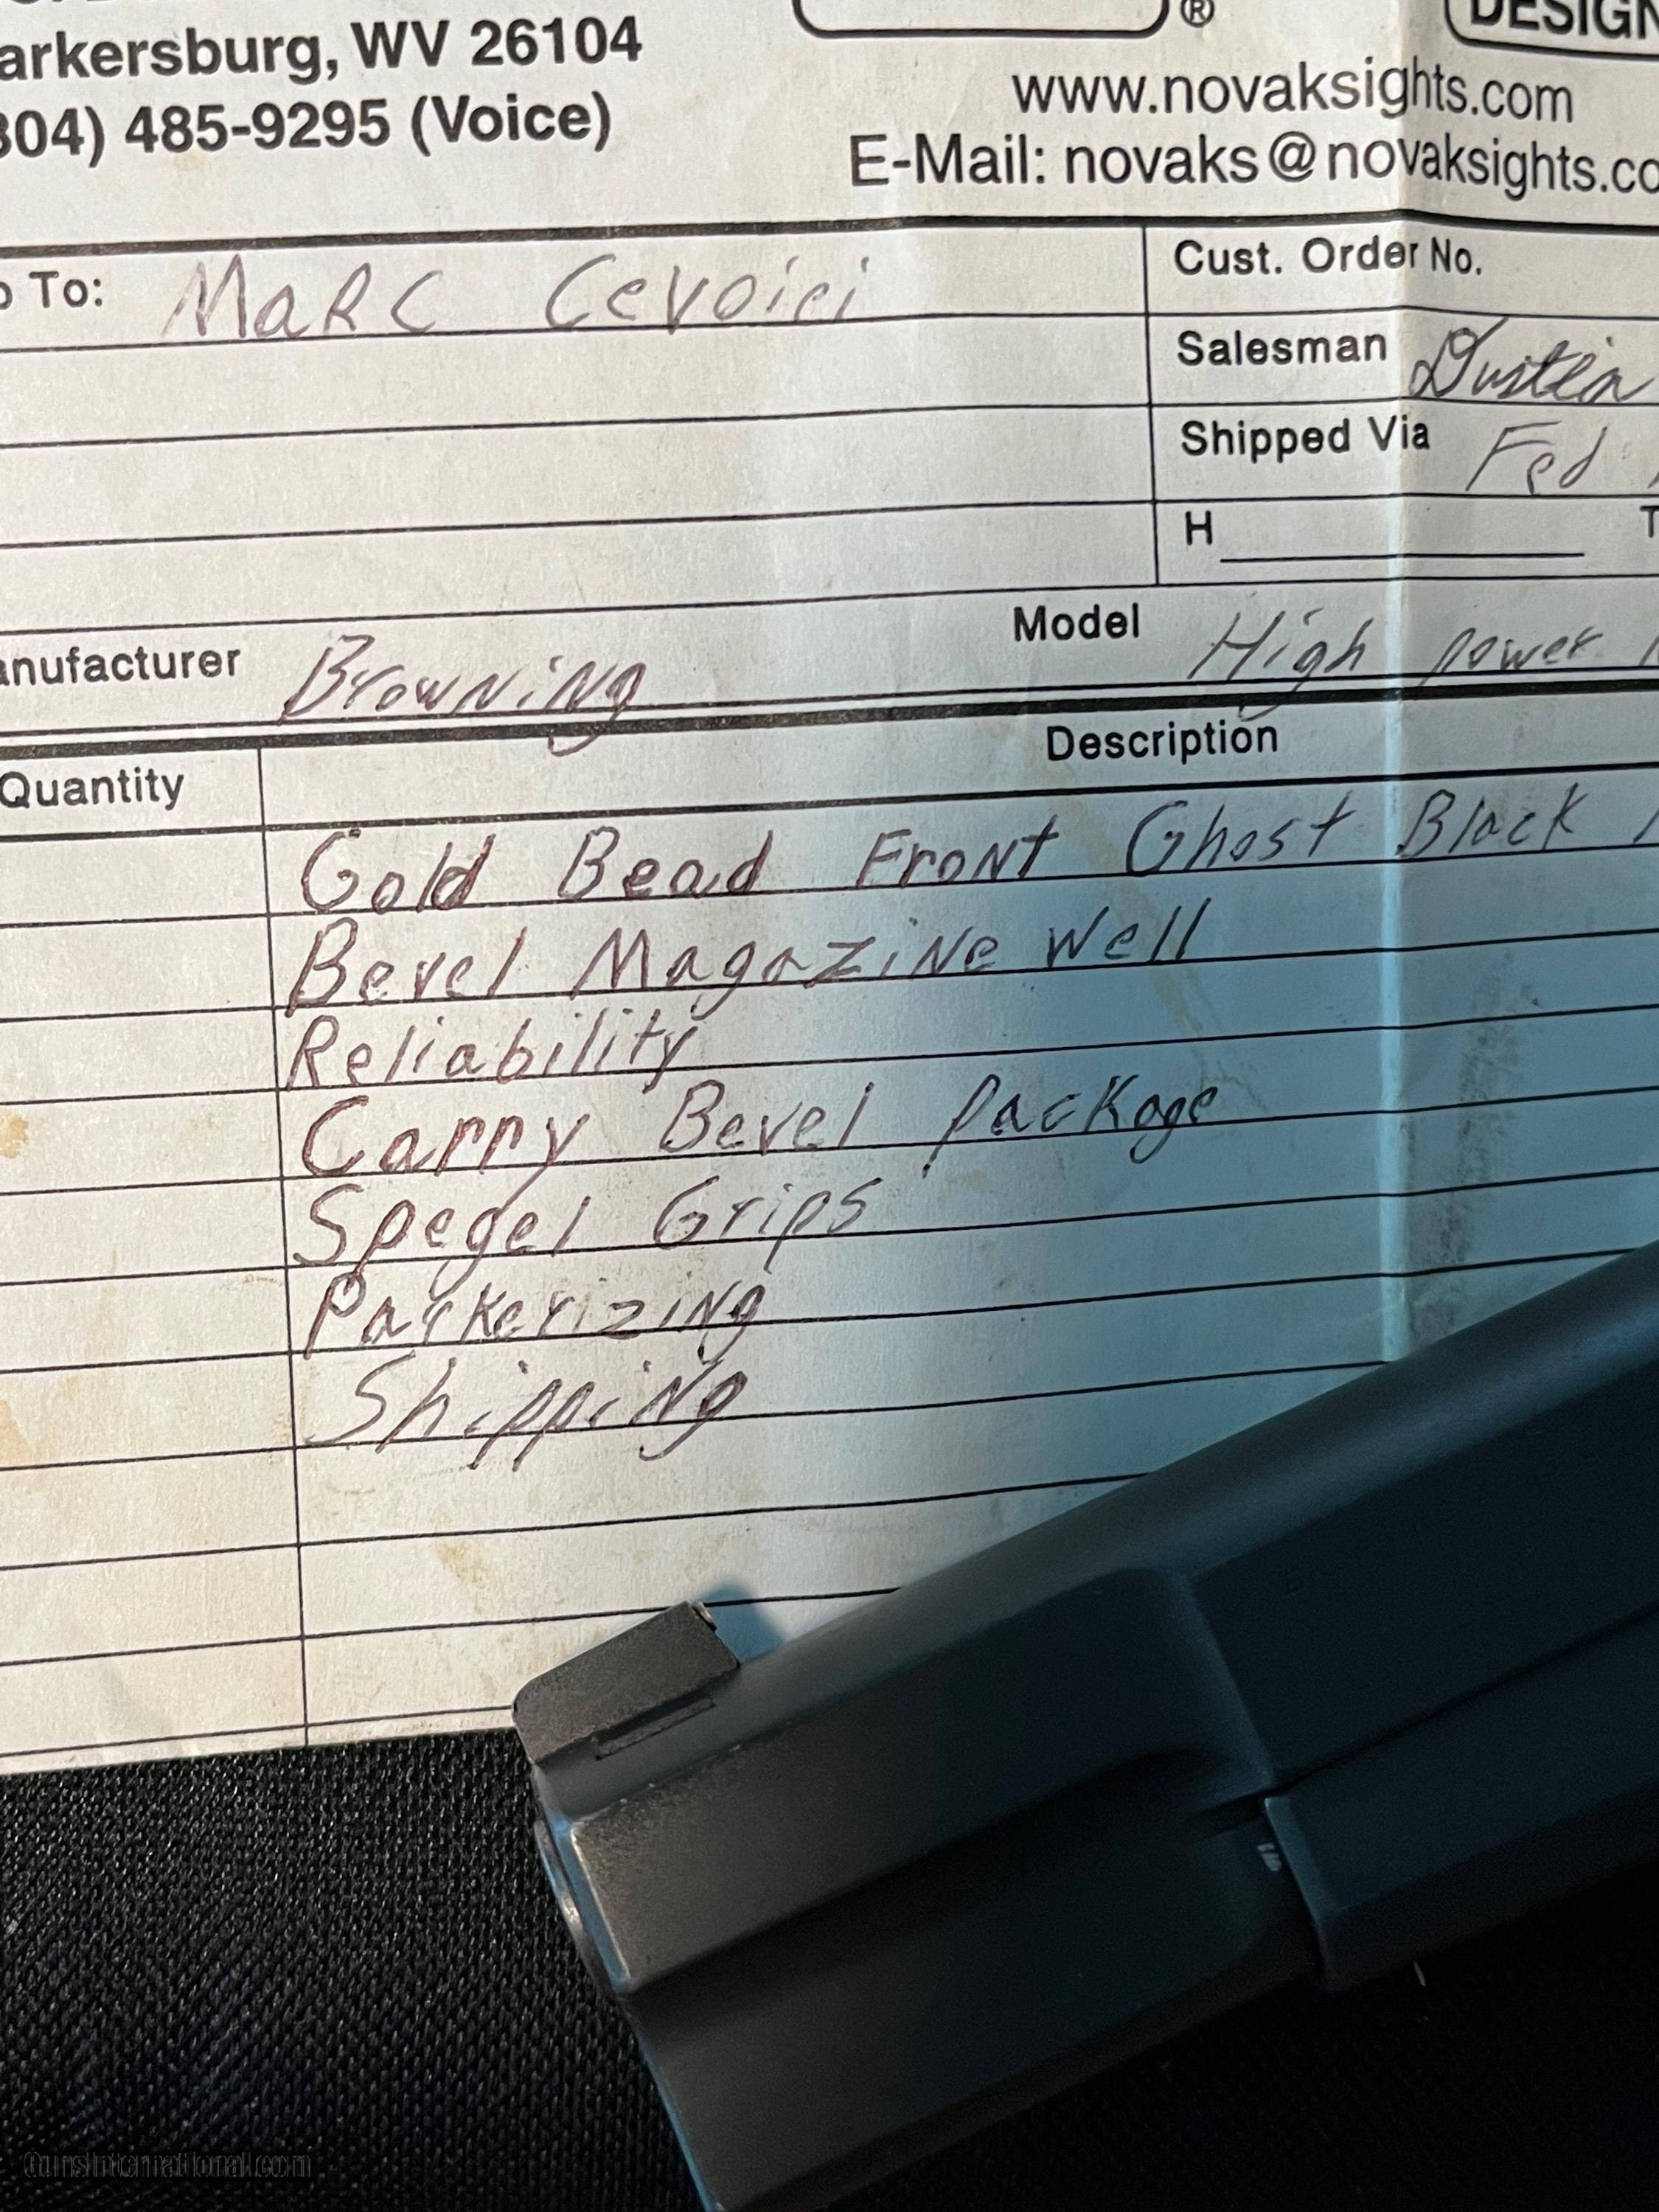 arkersburg, WV 26104
304) 485-9295 (Voice)
®
DESIGN
www.novaksights.com
E-Mail: novaks@novaksights.co
To: MaRC
Cust. Order No.
Salesman Dustin
Shipped Via Fed
H
T
anufacturer Browning
Model High power
Quantity
Description
Gold Bead Front Ghost Black
Bevel Magazine Well
Reliability
Carry Bevel Package
Spegel Grips
Parkerizing
Shipping
GunsInternational.com